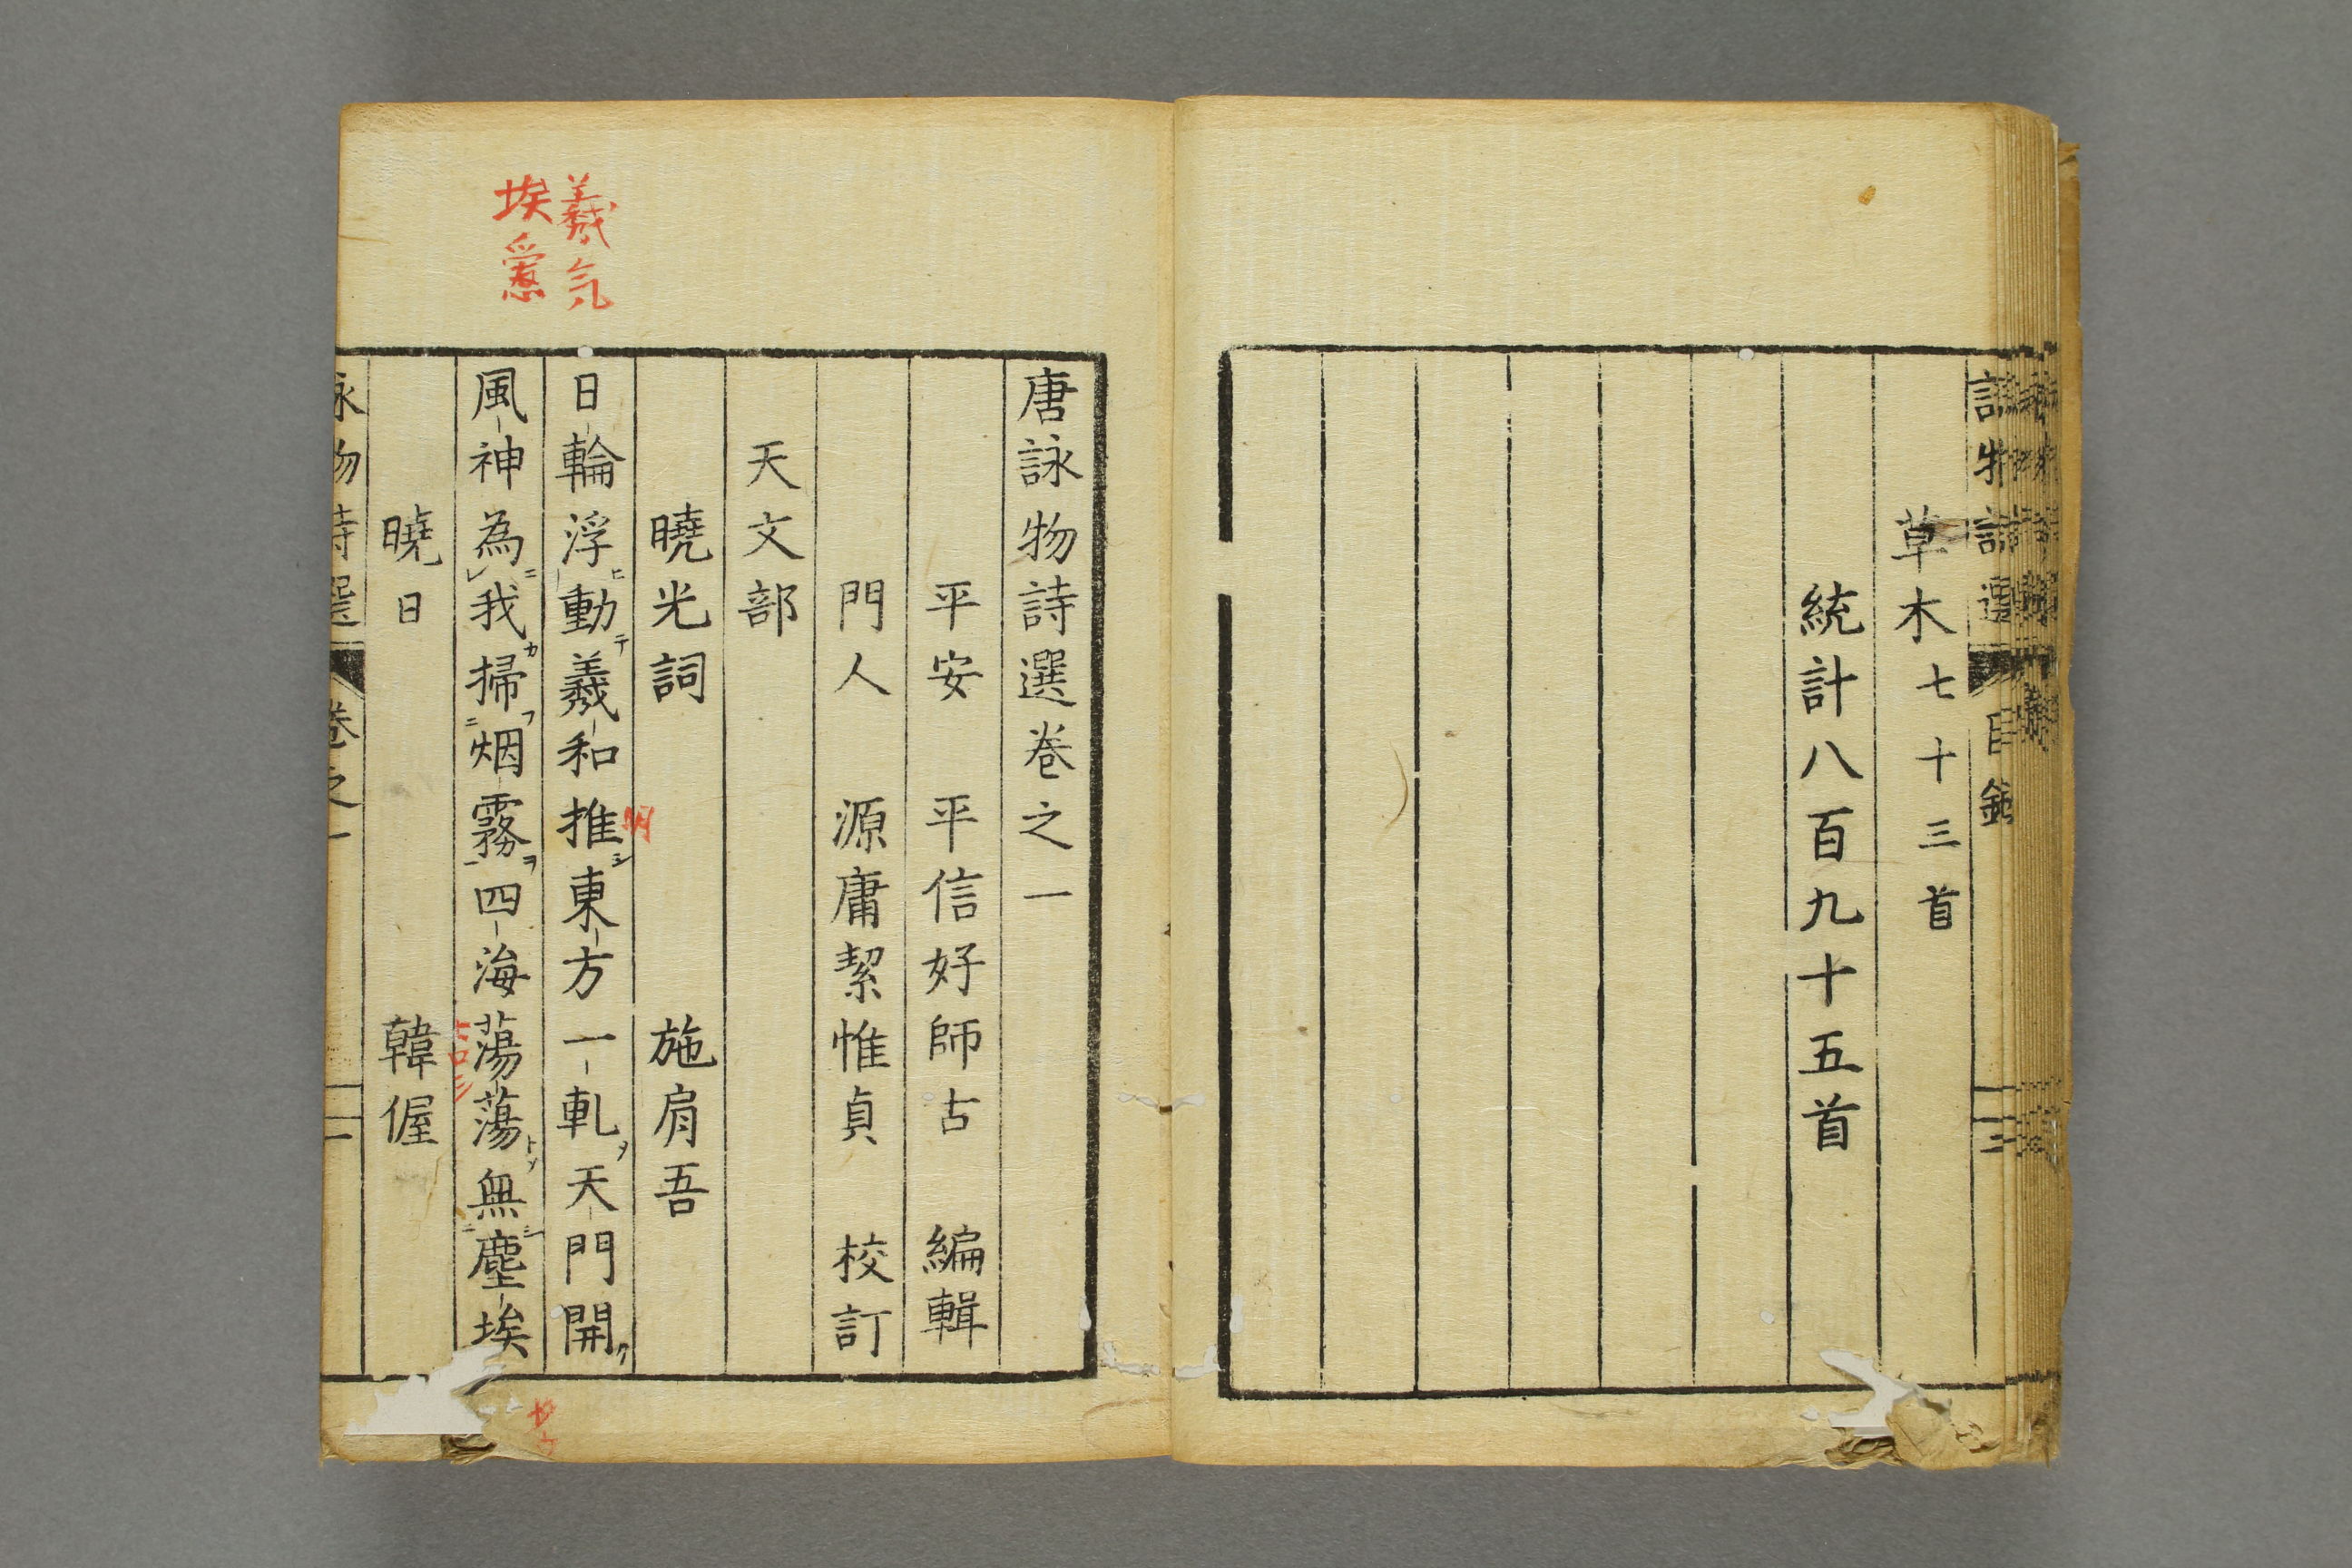 草木七十三首
統計八百九十五首
唐詠物詩選卷之一
平安 平信好師古 編輯
門人 源庸絜惟貞 校訂
天文部
曉光詞 施肩吾
日輪浮動羲和推東方一軋天門開
風神為我掃烟霧四海蕩蕩無塵埃
曉日 韓偓
詠物詩選 卷之一
羲氣
埃